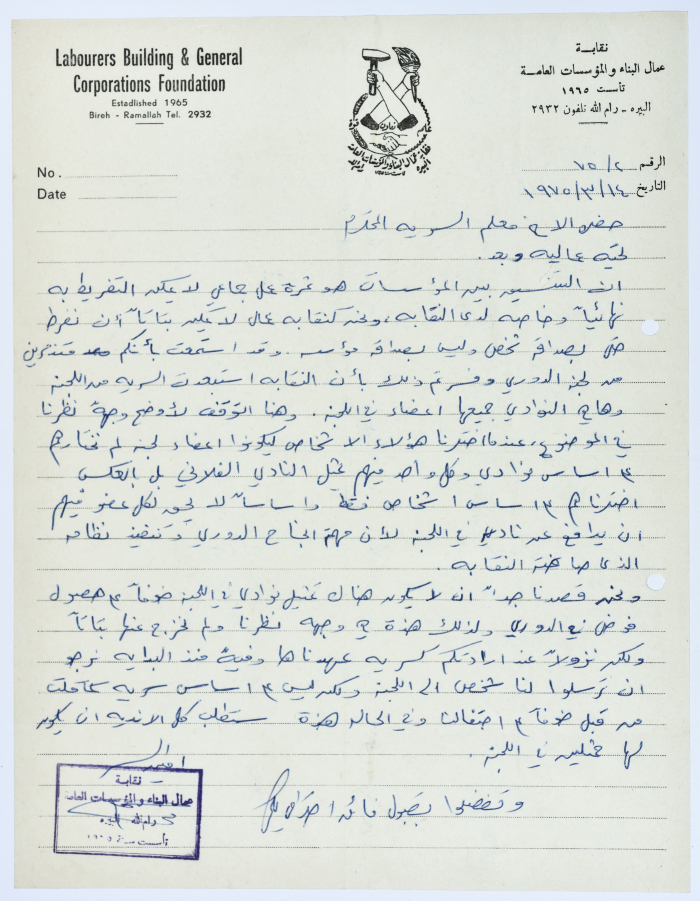 Labourers Building & General
Corporations Foundation
Estadlished 1965
Bireh - Ramallah Tel. 2932
نقابة
عمال البناء والمؤسسات العامة
تأسست ١٩٦٥
البيره - رام الله تلفون ٢٩٣٢
تعاون
No.
Date
الرقم ٧٥/٢
التاريخ ١٩٧٥/٣/١٤
حضرة الاخ معلم السريه المحترم
تحيه عاليه وبعد.
ان التنسيق بين المؤسسات هو ثمرة عمل جماعي لا يمكن التفريط به
نهائياً وخاصه لدى النقابه، ونحن كنقابه عمال لا يمكن بتاتاً أن نفرط
حتى بصداقة شخص وليس بصداقة مؤسسه. وقد استمعت بأنكم
من لجنة الدوري وفسرتم ذلك بأن النقابه استبعدت السريه من اللجنة
وهاهي النوادي جميعها اعضاء في اللجنة. وهنا التوقف لأوضح وجهة نظرنا
في الموضوع، عندما اخترنا هؤلاء الاشخاص ليكونوا اعضاء لجنه لم نختارهم
اساس نوادي وكل واحد فيهم يمثل النادي الفلاني بل بالعكس
اخترناهم اساس اشخاص فقط واساساً لا يحق لكل عضو فيهم
ان يدافع عن ناديه في اللجنة لأن مهمته انجاح الدوري وتنفيذ نظامه
الذي صاغته النقابه.
ونحن قصدنا جداً ان لا يكون هناك تمثيل نوادي في اللجنة خوفاً حصول
فوضى في الدوري ولذلك هذة هي وجهة نظرنا ولم نخرج عنها بتاتاً
ولكن نزولاً عند ارادتكم كسريه عهدناها وفيه منذ البدايه نرجو
ان ترسلوا لنا شخص الى اللجنة ولكن ليس اساس سريه
من قبل خوفاً احتفالنا وفي الحاله هذة ستطلب كل الانديه ان يكون
لها ممثلين في اللجنة.
وتفضلوا بقبول فائق احترامي لكم
امين السر
نقابة
عمال البناء والمؤسسات العامة
رام الله البيره